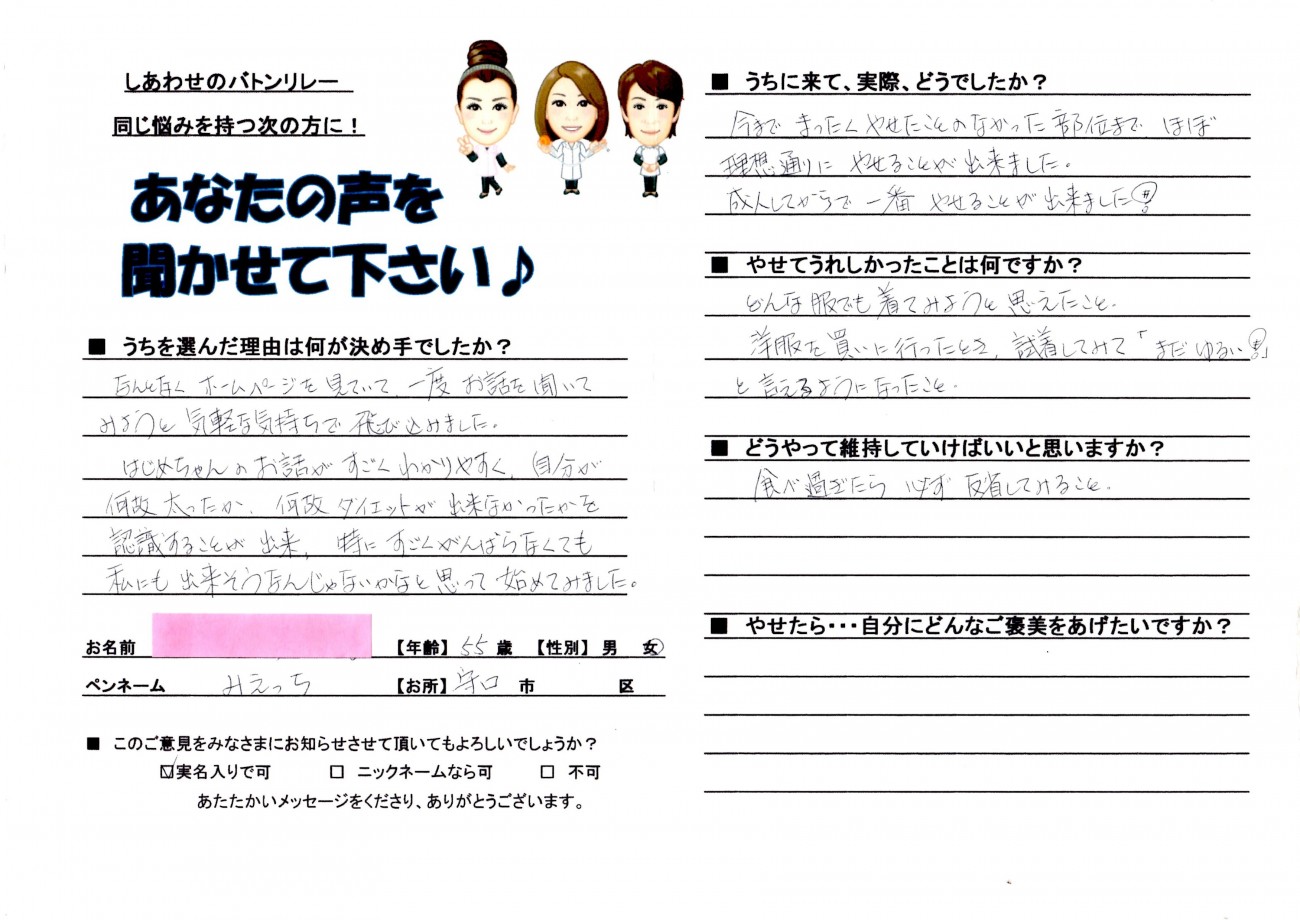 しあわせのバトンリレー
同じ悩みを持つ次の方に！
あなたの声を
聞かせて下さい♪
■ うちを選んだ理由は何が決め手でしたか？
なんとなく ホームページを見ていて、一度 お話を聞いて
みようと 気軽な気持ちで 飛び込みました。
はじめちゃんのお話が すごく わかりやすく、自分が
何故 太ったか、何故 ダイエットが 出来なかったかを
認識することが 出来、特に すごくがんばらなくても
私にも 出来そうなんじゃないかなと 思って 始めてみました。
お名前 【年齢】 55 歳 【性別】 男 女
ペンネーム みえっち 【お所】 守口 市 区
■ このご意見をみなさまにお知らせさせて頂いてもよろしいでしょうか？
☑実名入りで可 □ ニックネームなら可 □ 不可
あたたかいメッセージをくださり、ありがとうございます。
■ うちに来て、実際、どうでしたか？
今まで まったく やせたことのなかった 部位まで ほぼ
理想通りに やせることが 出来ました。
成人してからで 一番 やせることが 出来ました
■ やせてうれしかったことは何ですか？
どんな服でも 着てみようと 思えたこと。
洋服を 買いに行ったとき、試着してみて「まだ ゆるい」
と 言えるようになったこと。
■ どうやって維持していけばいいと思いますか？
食べ過ぎたら 必ず 反省してみること。
■ やせたら・・・自分にどんなご褒美をあげたいですか？